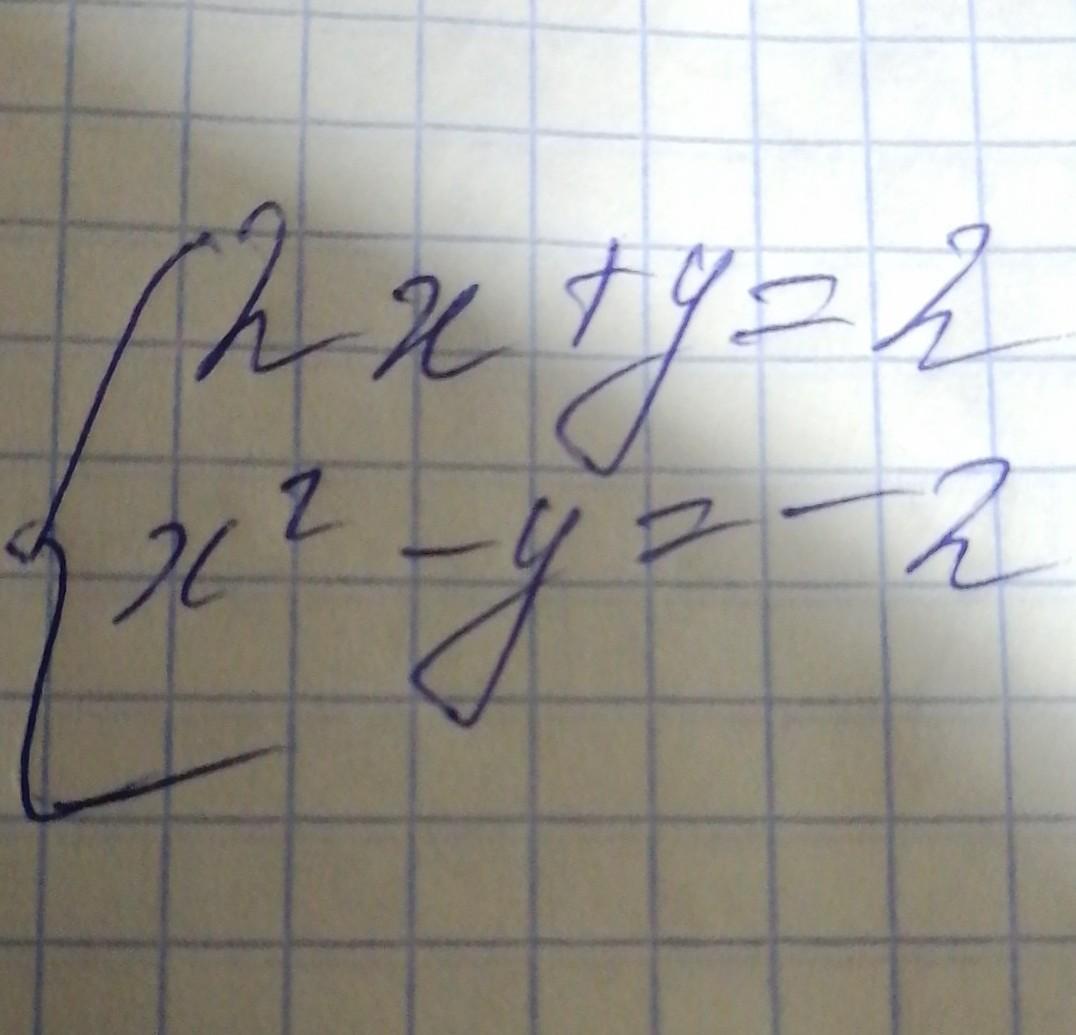 2x + y = 2
x² - y = -2